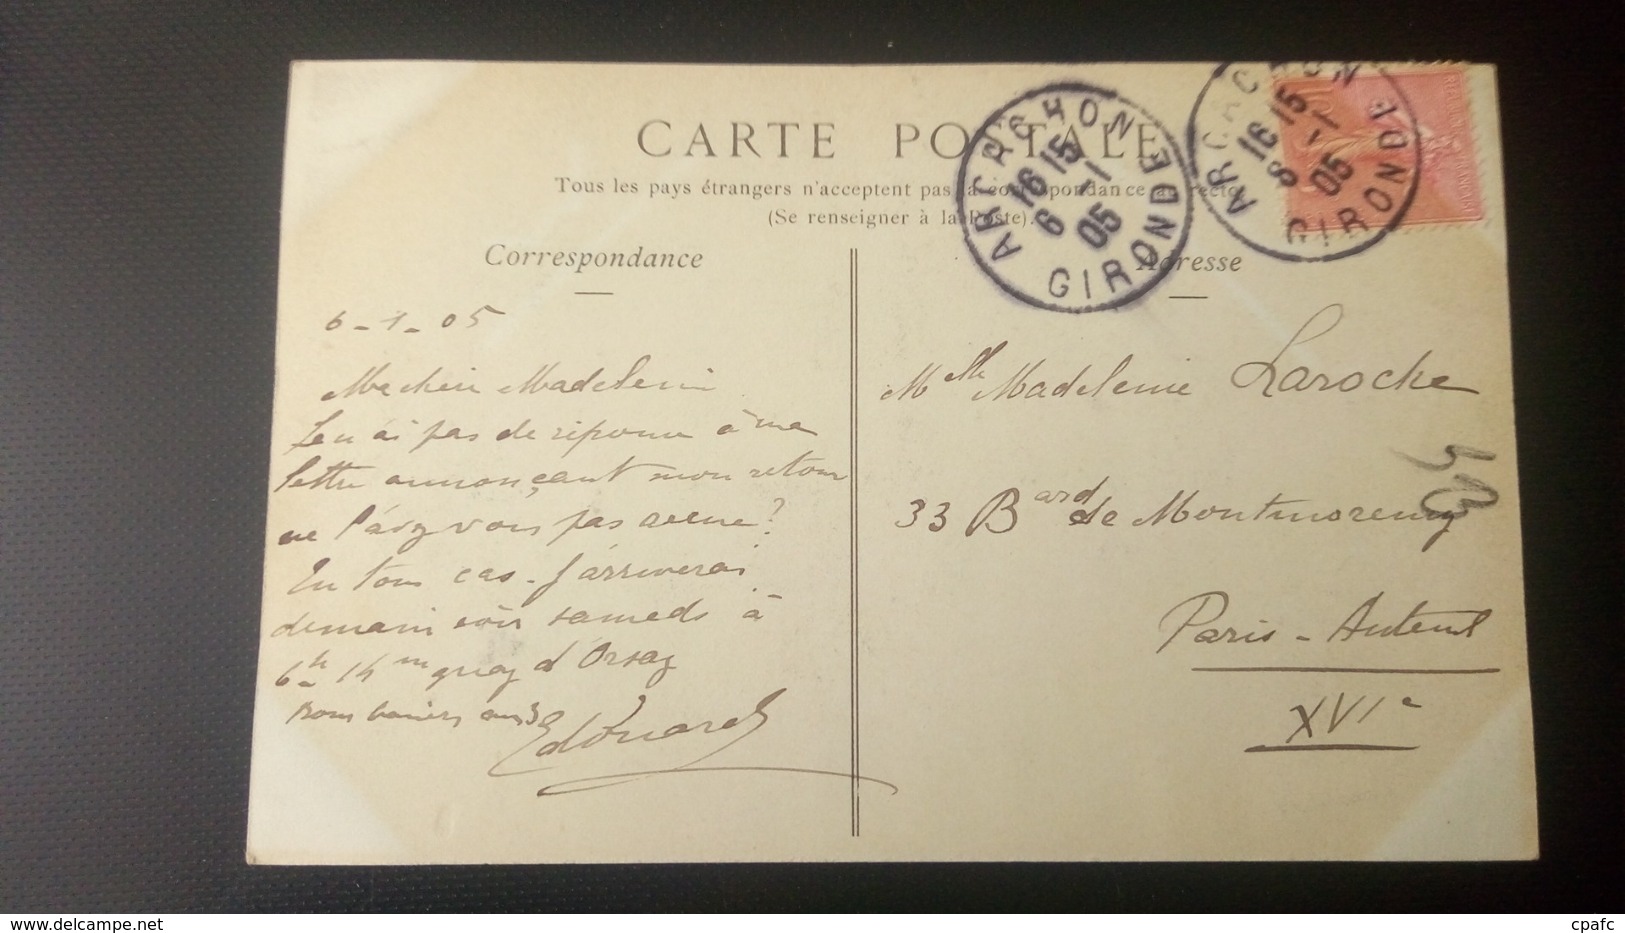 CARTE POSTALE
Tous les pays étrangers n'acceptent pas la correspondance au recto
(Se renseigner à la Poste).
Correspondance
6-1-05
Ma chère Madeleine
Je n'ai pas de réponse à ma
lettre annonçant mon retour
ne l'avez vous pas reçue?
En tous cas - j'arriverai
demain soir samedi à
6h 14m quay d'Orsay
Bons baisers
Edouard
Adresse
Mlle Madeleine Laroche
33 Bard de Montmorency
Paris-Auteuil
XVIe
ARCACHON
16 15
6 -1
05
GIRONDE
ARCACHON
16 15
6 -1
05
GIRONDE
www.delcampe.net
cpafc